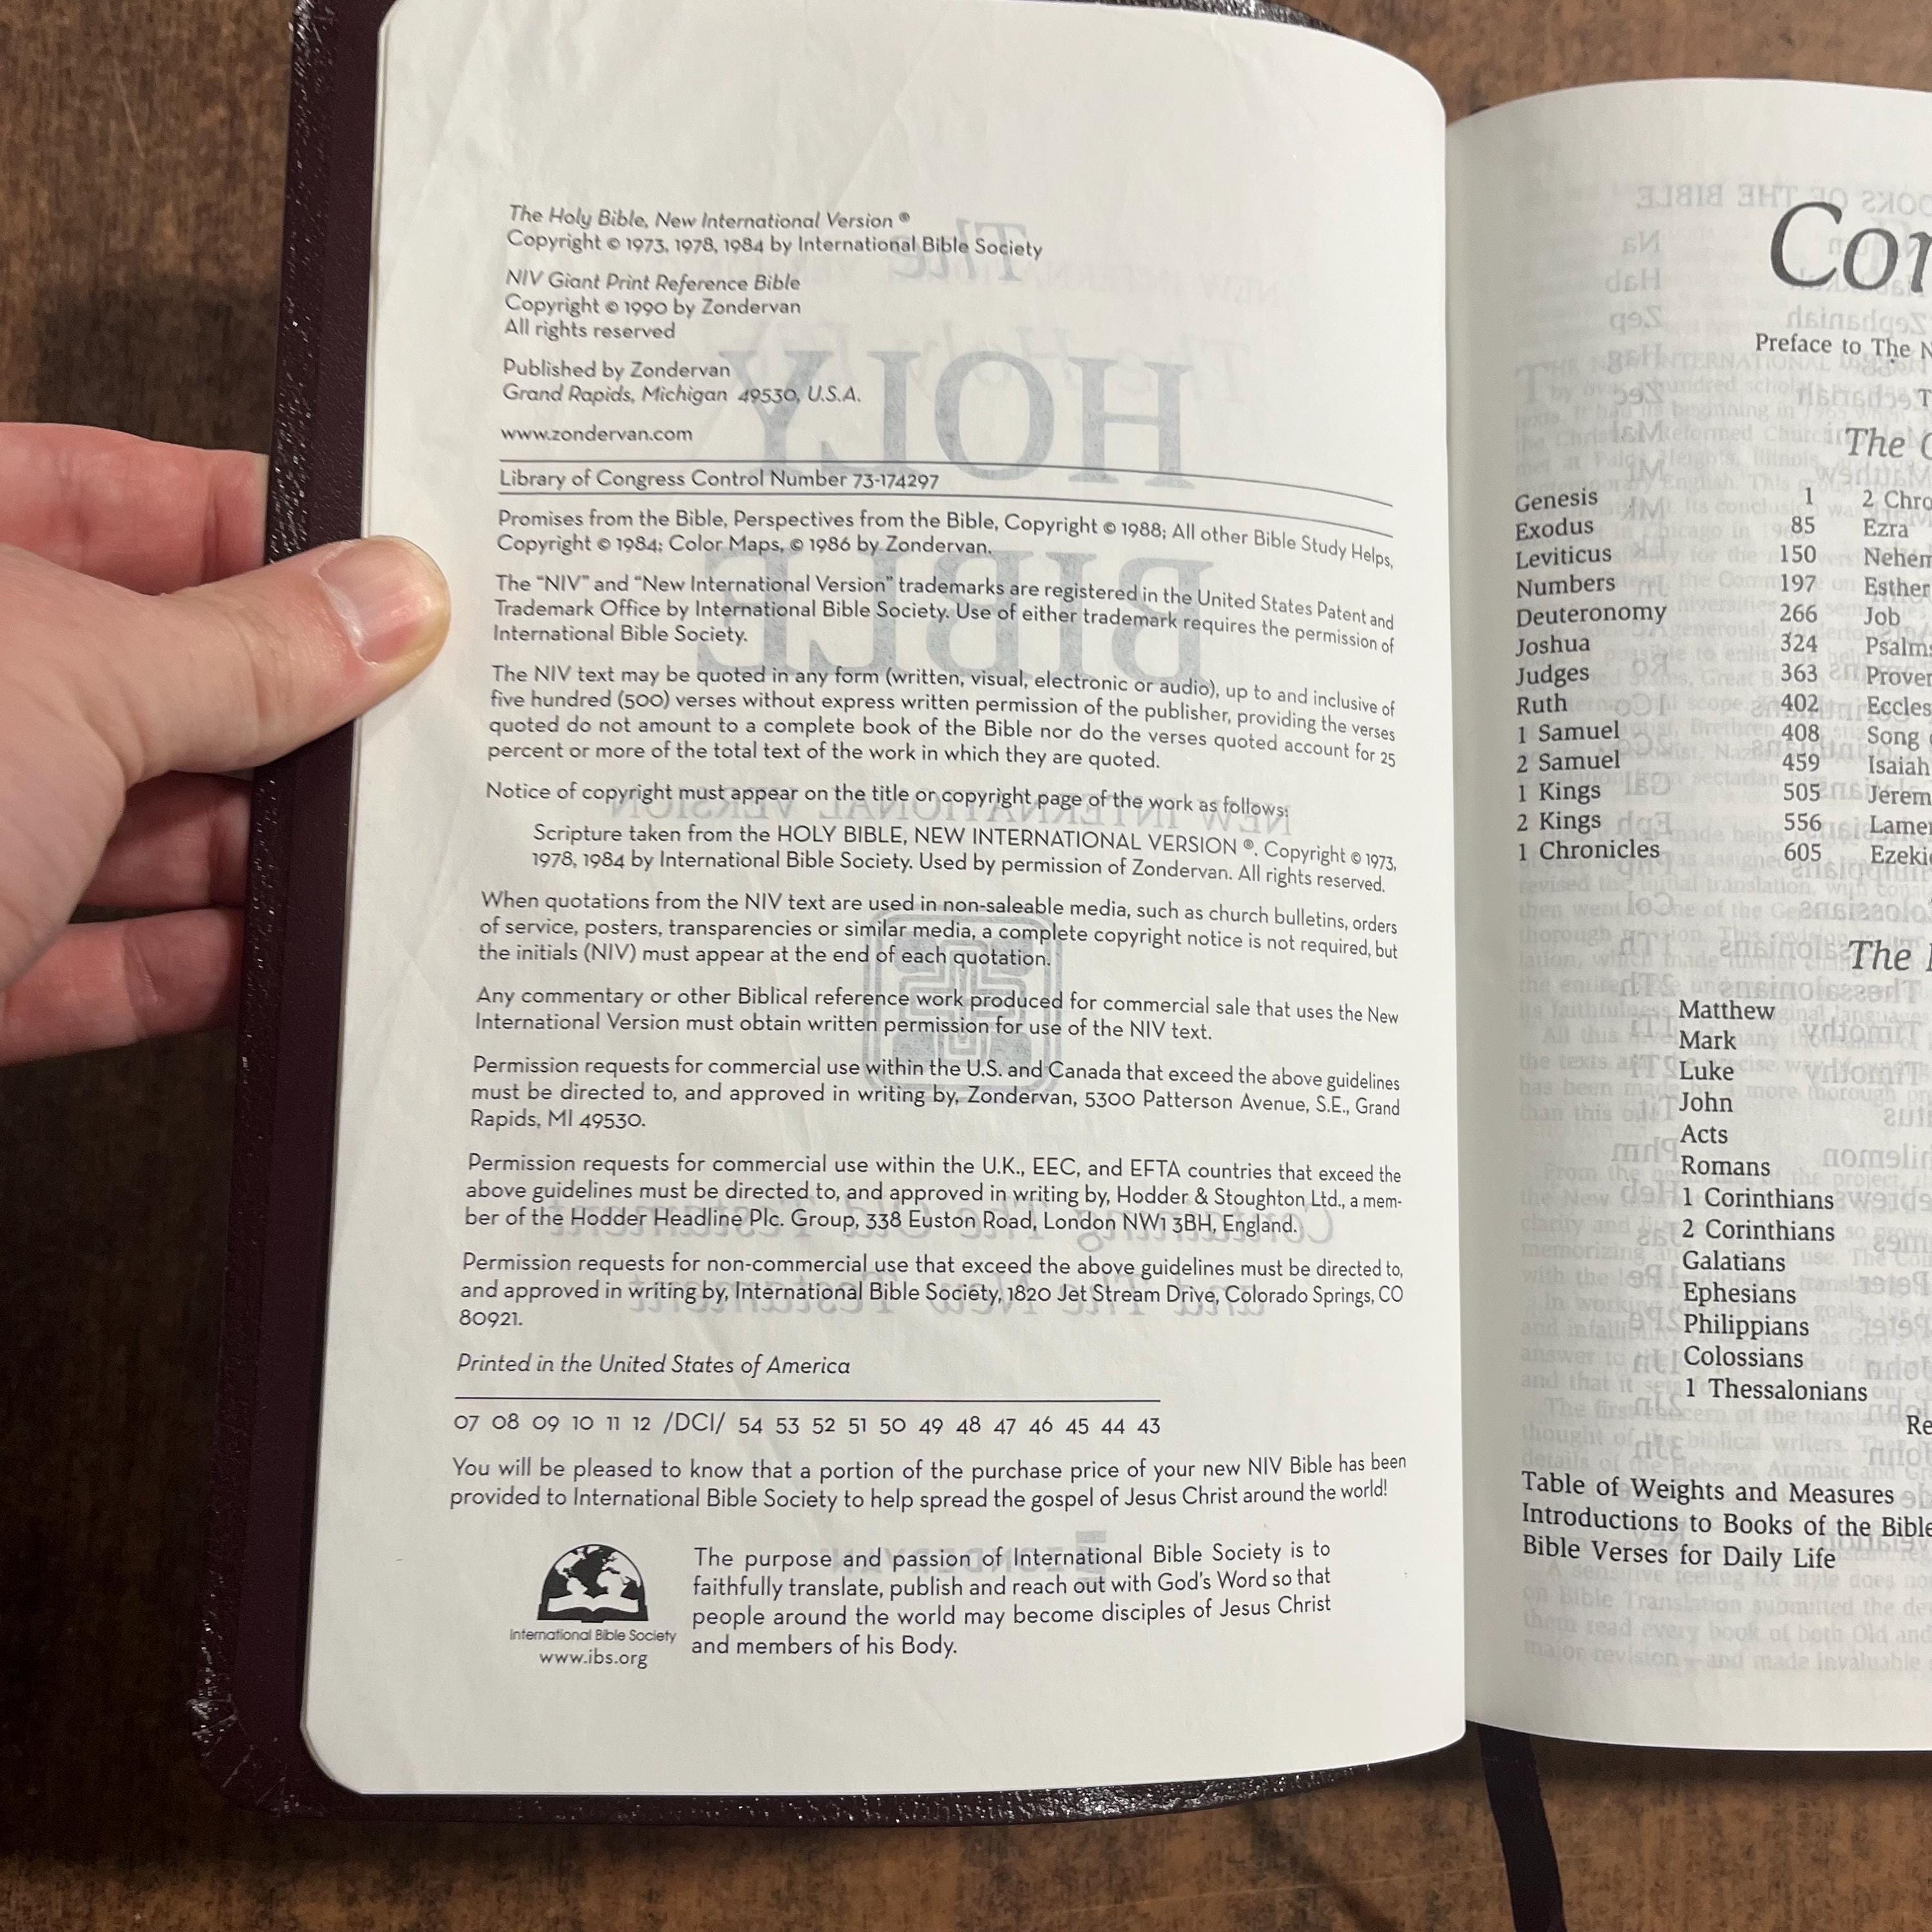 The Holy Bible, New International Version ®
Copyright © 1973, 1978, 1984 by International Bible Society
NIV Giant Print Reference Bible
Copyright © 1990 by Zondervan
All rights reserved
Published by Zondervan
Grand Rapids, Michigan 49530, U.S.A.
www.zondervan.com
Library of Congress Control Number 73-174297
Promises from the Bible, Perspectives from the Bible, Copyright © 1988; All other Bible Study Helps,
Copyright © 1984; Color Maps, © 1986 by Zondervan.
The “NIV” and “New International Version” trademarks are registered in the United States Patent and
Trademark Office by International Bible Society. Use of either trademark requires the permission of
International Bible Society.
The NIV text may be quoted in any form (written, visual, electronic or audio), up to and inclusive of
five hundred (500) verses without express written permission of the publisher, providing the verses
quoted do not amount to a complete book of the Bible nor do the verses quoted account for 25
percent or more of the total text of the work in which they are quoted.
Notice of copyright must appear on the title or copyright page of the work as follows:
Scripture taken from the HOLY BIBLE, NEW INTERNATIONAL VERSION ®. Copyright © 1973,
1978, 1984 by International Bible Society. Used by permission of Zondervan. All rights reserved.
When quotations from the NIV text are used in non-saleable media, such as church bulletins, orders
of service, posters, transparencies or similar media, a complete copyright notice is not required, but
the initials (NIV) must appear at the end of each quotation.
Any commentary or other Biblical reference work produced for commercial sale that uses the New
International Version must obtain written permission for use of the NIV text.
Permission requests for commercial use within the U.S. and Canada that exceed the above guidelines
must be directed to, and approved in writing by, Zondervan, 5300 Patterson Avenue, S.E., Grand
Rapids, MI 49530.
Permission requests for commercial use within the U.K., EEC, and EFTA countries that exceed the
above guidelines must be directed to, and approved in writing by, Hodder & Stoughton Ltd., a mem-
ber of the Hodder Headline Plc. Group, 338 Euston Road, London NW1 3BH, England.
Permission requests for non-commercial use that exceed the above guidelines must be directed to,
and approved in writing by, International Bible Society, 1820 Jet Stream Drive, Colorado Springs, CO
80921.
Printed in the United States of America
07 08 09 10 11 12 /DCI/ 54 53 52 51 50 49 48 47 46 45 44 43
You will be pleased to know that a portion of the purchase price of your new NIV Bible has been
provided to International Bible Society to help spread the gospel of Jesus Christ around the world!
International Bible Society
www.ibs.org
The purpose and passion of International Bible Society is to
faithfully translate, publish and reach out with God's Word so that
people around the world may become disciples of Jesus Christ
and members of his Body.
Con
Preface to The N
The
Genesis 1 2 Chro
Exodus 85 Ezra
Leviticus 150 Nehem
Numbers 197 Esther
Deuteronomy 266 Job
Joshua 324 Psalms
Judges 363 Prover
Ruth 402 Eccles
1 Samuel 408 Song
2 Samuel 459 Isaiah
1 Kings 505 Jerem
2 Kings 556 Lamen
1 Chronicles 605 Ezekie
The
Matthew
Mark
Luke
John
Acts
Romans
1 Corinthians
2 Corinthians
Galatians
Ephesians
Philippians
Colossians
1 Thessalonians
Re
Table of Weights and Measures
Introductions to Books of the Bible
Bible Verses for Daily Life